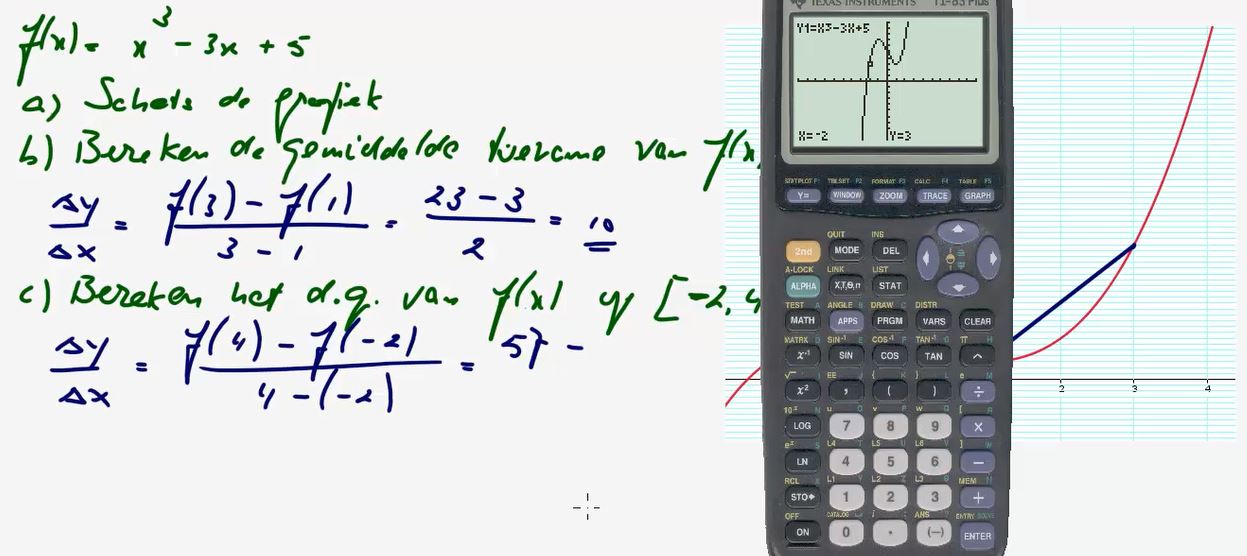 f(x) = x³ - 3x + 5
a) Schets de grafiek
b) Bereken de gemiddelde toename van f(x
Δy/Δx = (f(3) - f(1))/(3 - 1) = (23 - 3)/2 = 10
c) Bereken het d.q. van f(x) op [-2, 4
Δy/Δx = (f(4) - f(-2))/(4 - (-2)) = 57 -
TEXAS INSTRUMENTS TI-83 Plus
Y1=X³-3X+5
X=-2 Y=3
STATPLOT F1 TBLSET F2 FORMAT F3 CALC F4 TABLE F5
Y= WINDOW ZOOM TRACE GRAPH
QUIT INS
2nd MODE DEL
A-LOCK LINK LIST
ALPHA X,T,θ,n STAT
TEST A ANGLE B DRAW C DISTR
MATH APPS PRGM VARS CLEAR
MATRX D SIN⁻¹ E COS⁻¹ F TAN⁻¹ G π H
x⁻¹ SIN COS TAN ^
√ I EE J { K } L e M
x² , ( ) ÷
10ˣ N u O v P w Q [ R
LOG 7 8 9 ×
eˣ S L4 T L5 U L6 V ] W
LN 4 5 6 −
RCL X L1 Y L2 Z L3 θ MEM "
STO 1 2 3 +
OFF CATALOG i ANS ? ENTRY SOLVE
ON 0 . (−) ENTER
2 3 4